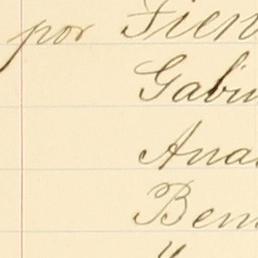 por Fien
Gabi
Ana
Ben